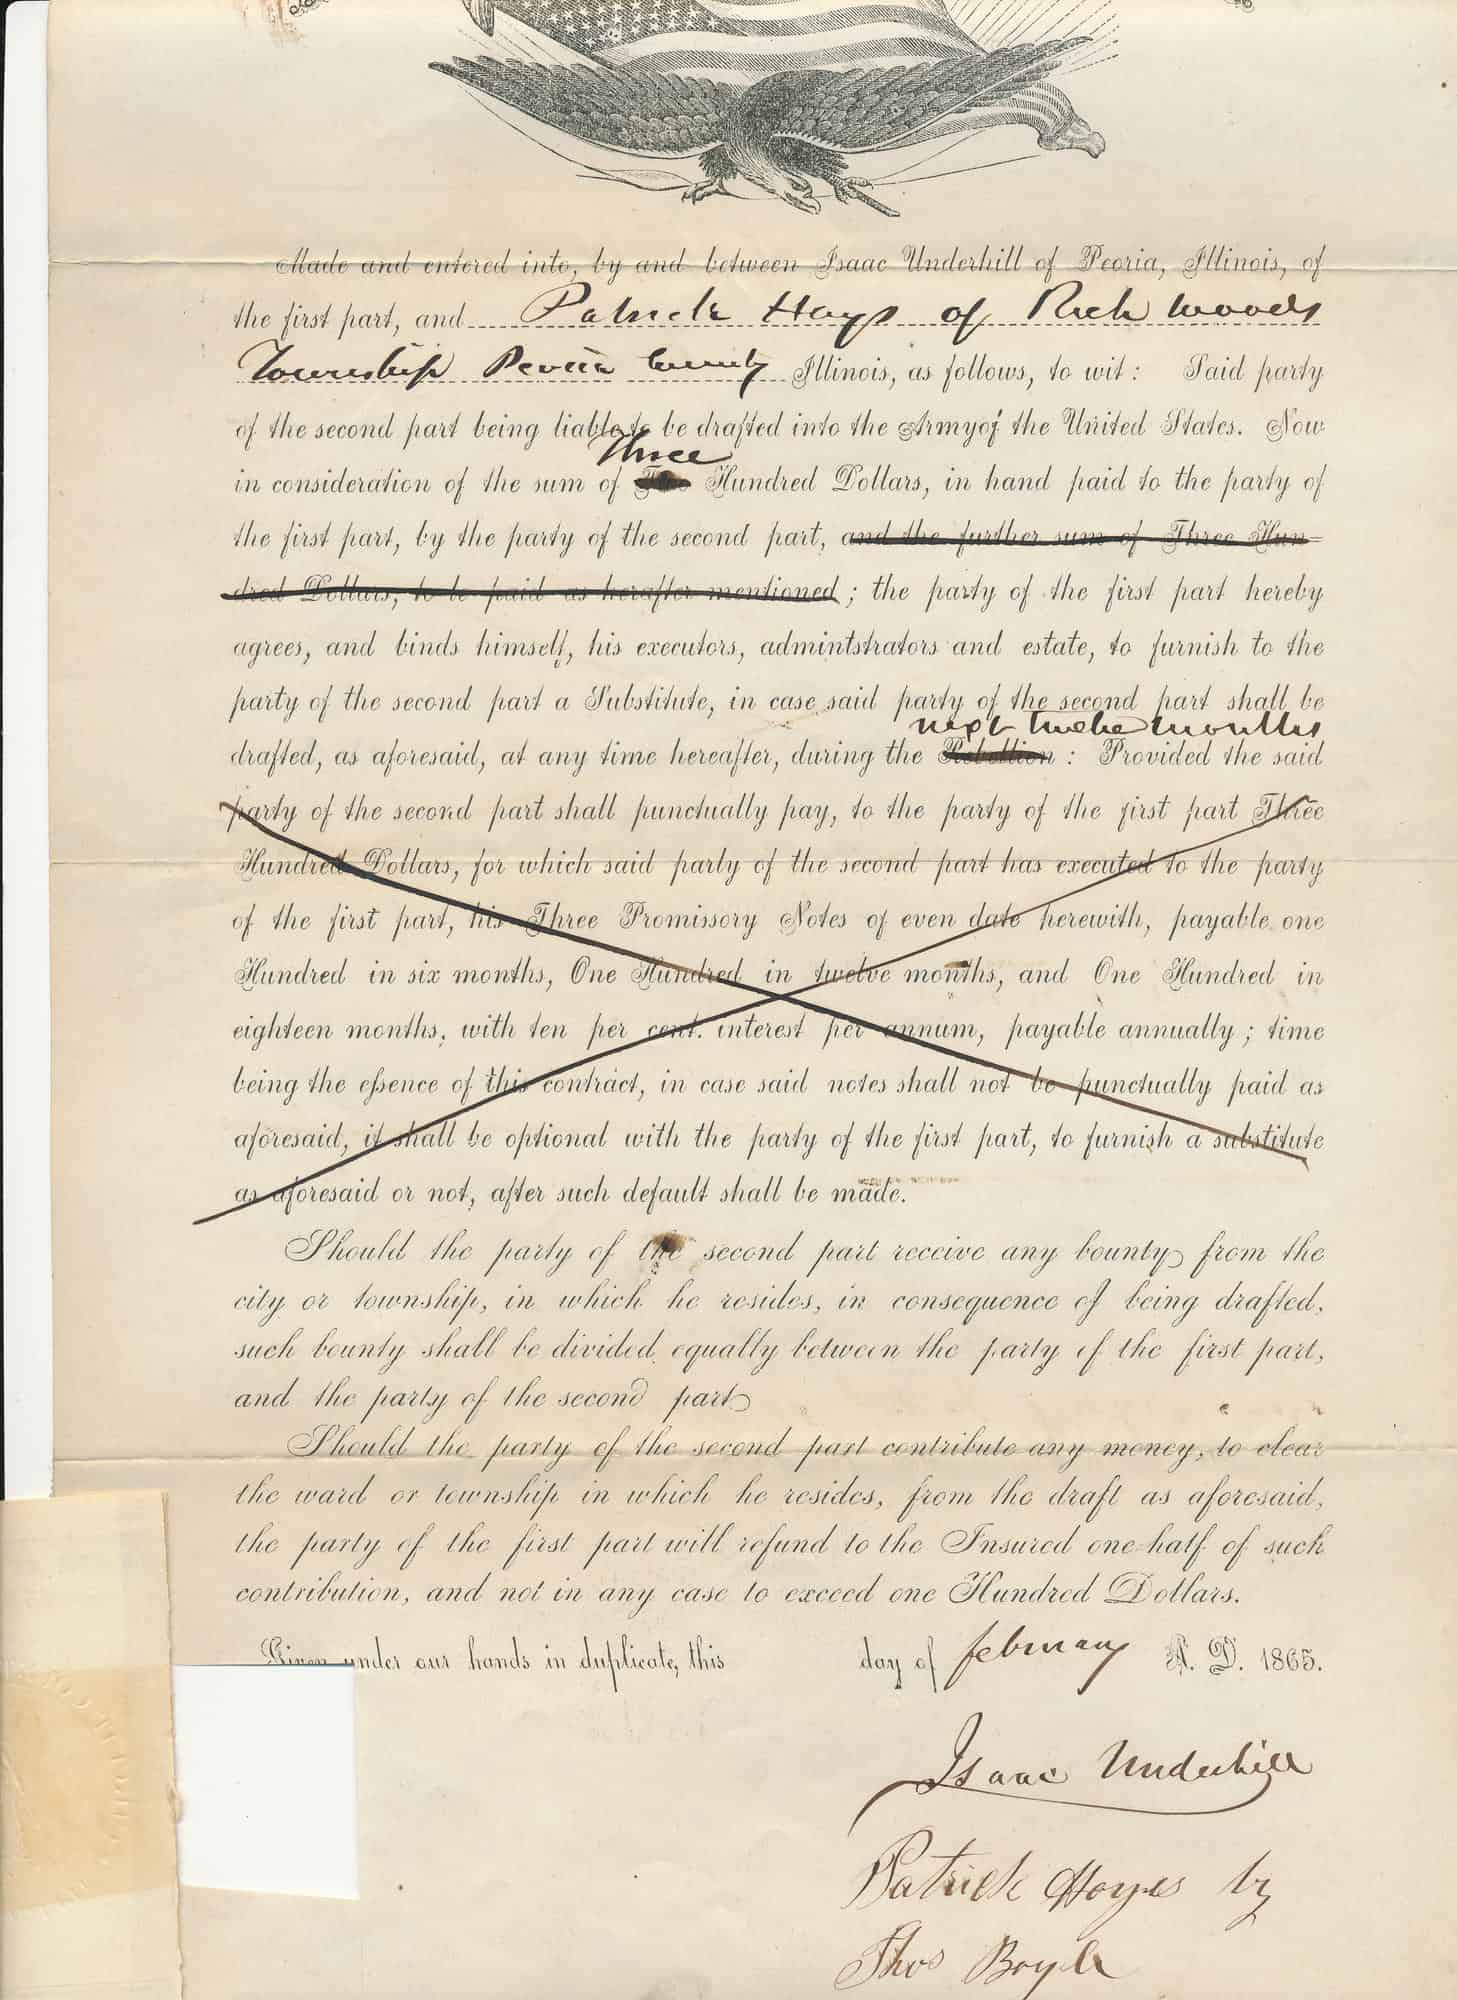 Made and entered into, by and between Isaac Underhill of Peoria, Illinois, of
the first part, and Patrick Hays of Rich woods
Township Peoria County Illinois, as follows, to wit: Said party
of the second part being liable to be drafted into the Army of the United States. Now
Three
in consideration of the sum of Hundred Dollars, in hand paid to the party of
the first part, by the party of the second part, and the further sum of Three Hun-
dred Dollars, to be paid as herafter mentioned; the party of the first part hereby
agrees, and binds himself, his executors, admintstrators and estate, to furnish to the
party of the second part a Substitute, in case said party of the second part shall be
next twelve months
drafted, as aforesaid, at any time hereafter, during the Rebellion: Provided the said
party of the second part shall punctually pay, to the party of the first part Three
Hundred Dollars, for which said party of the second part has executed to the party
of the first part, his Three Promissory Notes of even date herewith, payable one
Hundred in six months, One Hundred in twelve months, and One Hundred in
eighteen months, with ten per cent. interest per annum, payable annually; time
being the essence of this contract, in case said notes shall not be punctually paid as
aforesaid, it shall be optional with the party of the first part, to furnish a substitute
as aforesaid or not, after such default shall be made.
Should the party of the second part receive any bounty from the
city or township, in which he resides, in consequence of being drafted,
such bounty shall be divided equally between the party of the first part,
and the party of the second part
Should the party of the second part contribute any money, to clear
the ward or township in which he resides, from the draft as aforesaid,
the party of the first part will refund to the Insured one-half of such
contribution, and not in any case to exceed one Hundred Dollars.
Given under our hands in duplicate, this day of february A. D. 1865.
Isaac Underhill
Patrick Hayes by
Thos Boyle